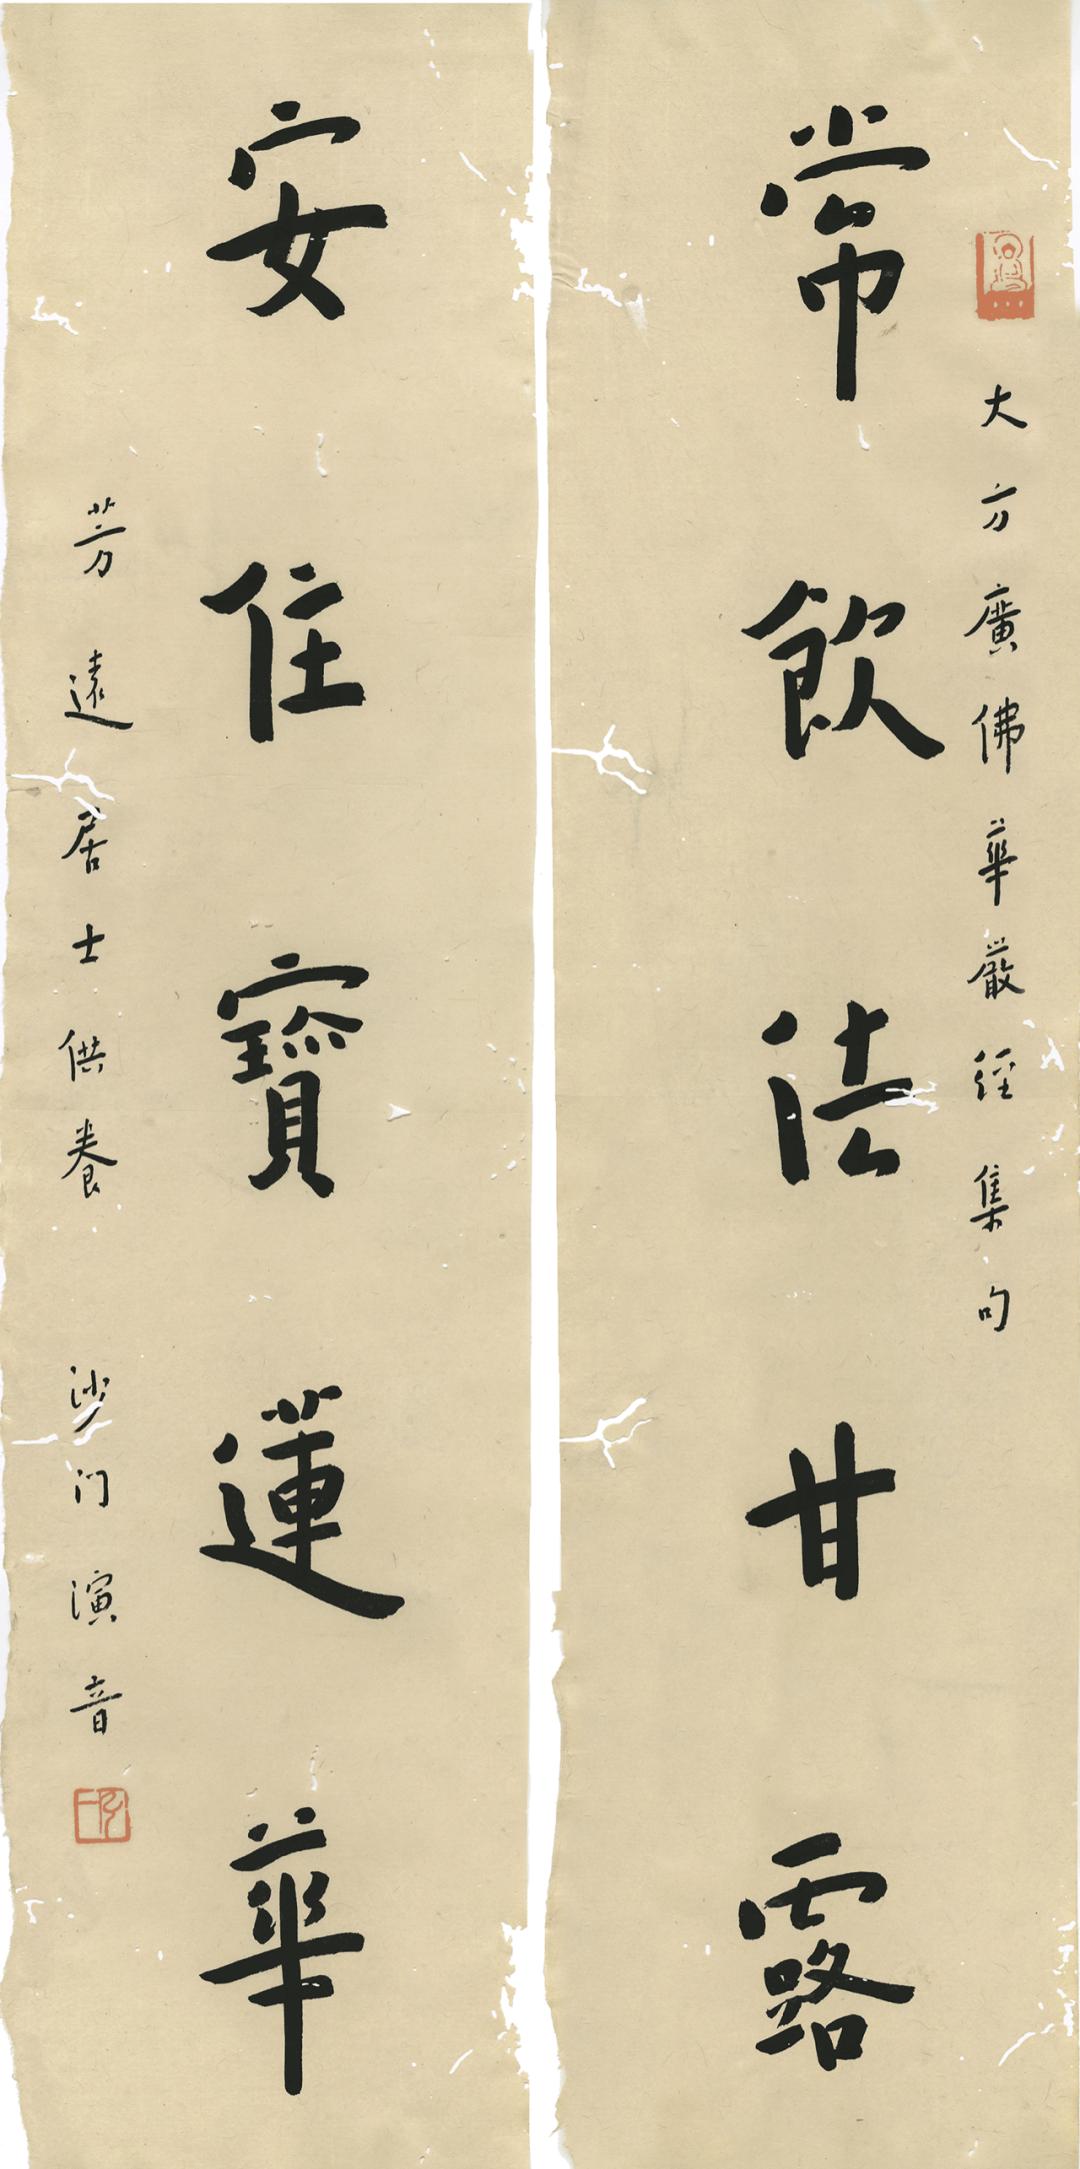 大方廣佛華嚴經集句
常飲法甘露
安住寶蓮華
芳遠居士供養 沙门演音